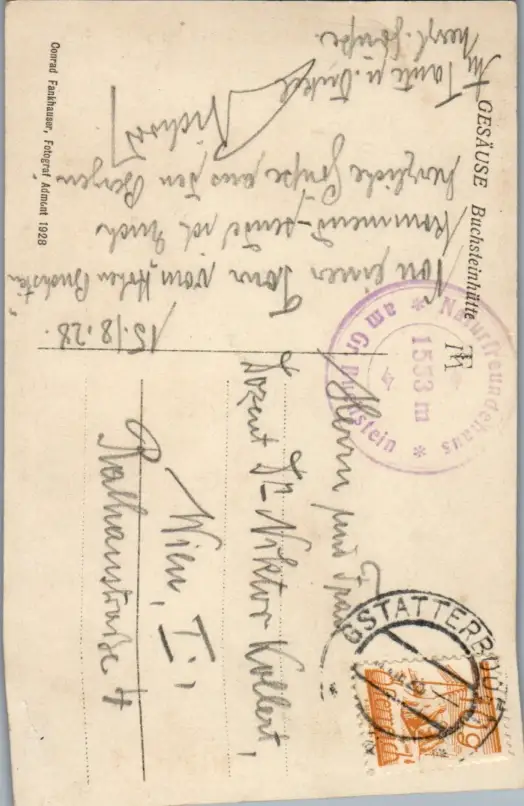 GESÄUSE Buchsteinhütte
15./8.28.
Von einer Tour vom „Hohen Buchstein“
kommend, sende ich Euch
herzliche Grüße aus den Bergen
Tante u. Onkel
herzl. Grüße.
Conrad Fankhauser, Fotograf Admont 1928
Naturfreundehaus
1553 m
am Gr. Buchstein
Herrn und Frau
Dozent Dr Viktor Kollert,
Wien, I.,
Rathausstraße 4
GSTATTERBODEN